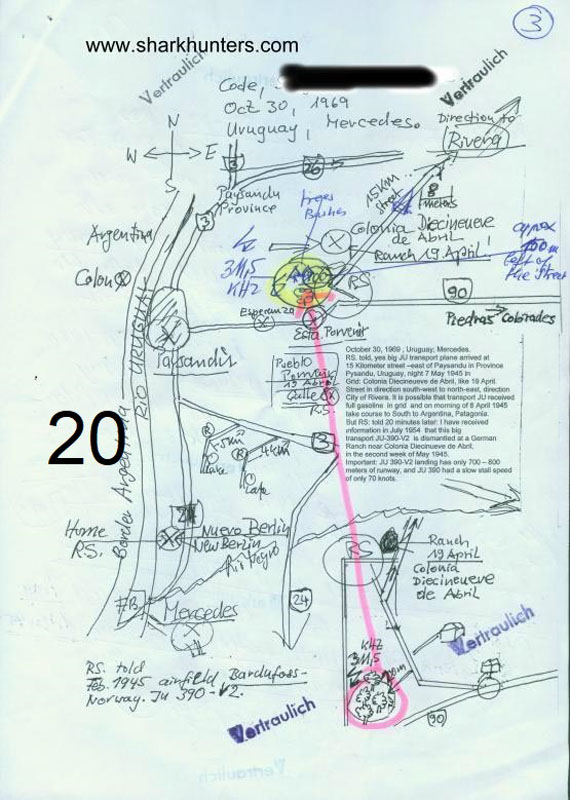 www.sharkhunters.com
3
Vertraulich
Vertraulich
Code,
Oct 30, 1969
Uruguay, Mercedes.
Direction to
Rivera
N
W E
S
3
26
Paysandu
Province
3
15km
street
Argentina
Colonia Diecineueve
de Abril
Ranch 19 April!
approx
left of
the Street
311,5
KHZ
RS
Colon
90
Esperanza
Piedras Colorades
Esta. Porvenir
RIO URUGUAY
Paysandu
Pueblo
Porvenir
19 Abril
R.S.
October 30, 1969 ; Uruguay; Mercedes.
RS. told, yes big JU transport plane arrived at
15 Kilometer street –east of Paysandu in Province
Pysandu, Uruguay, night 7 May 1945 in
Grid: Colonia Diecineueve de Abril, like 19 April.
Street in direction south-west to north-east, direction
City of Rivera. It is possible that transport JU received
full gasoline in grid and on morning of 8 April 1945
take course to South to Argentina, Patagonia.
But RS: told 20 minutes later: I have received
information in July 1954 that this big
transport JU-390-V2 is dismantled at a German
Ranch near Colonia Diecineueve de Abril,
in the second week of May 1945.
Important: JU 390-V2 landing has only 700 – 800
meters of runway, and JU 390 had a slow stall speed
of only 70 knots.
20
Border Argentina
3
4km
Lake
Lake
Home
R.S.
24
Nuevo Berlin
New Berlin
Rio Negro
N
RS
Ranch
19 April
Colonia
Diecineueve
de Abril
24
Mercedes
KHZ
311,5
Vertraulich
90
RS. told
Feb. 1945 airfield Bardufoss-
Norway. Ju 390-V2.
Vertraulich
Vertraulich